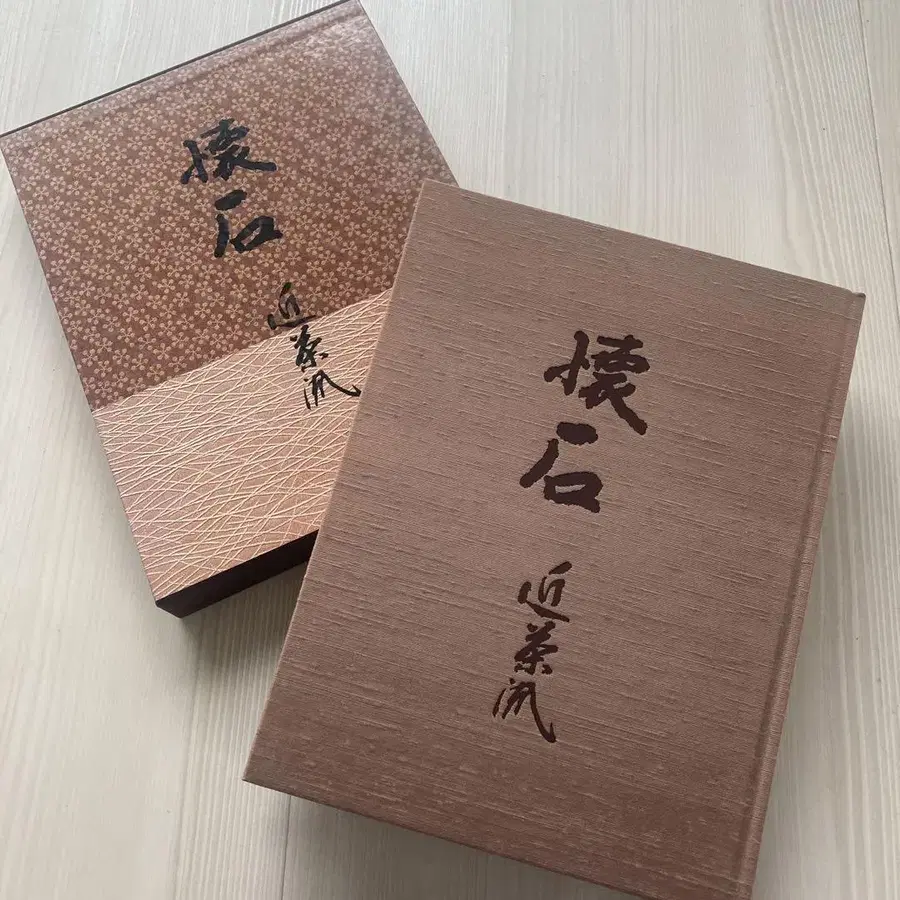 懐石
近茶流
懐石
近茶流